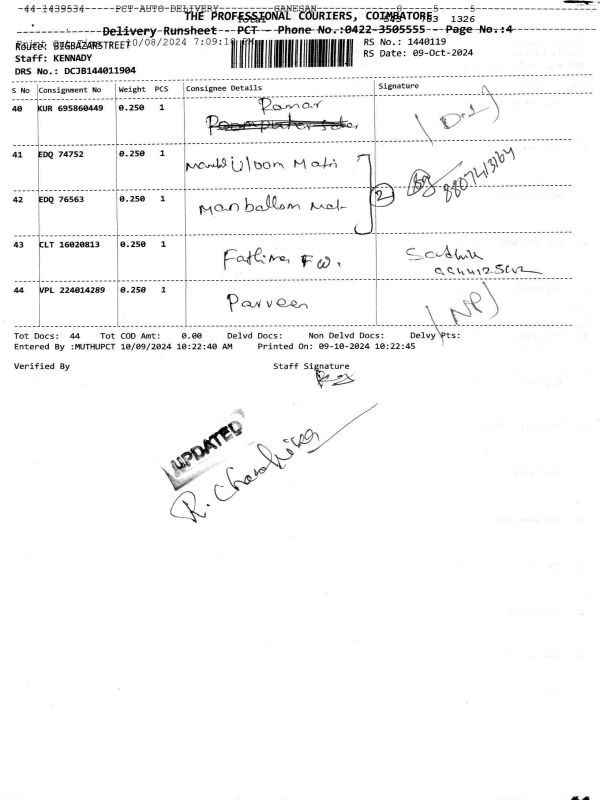 44 1439534 PCT AUTO DELIVERY GANESAN 0 5 5
THE PROFESSIONAL COURIERS, COIMBATORE
Total 1326
Delivery Runsheet PCT Phone No.:0422-3505555 Page No.:4
10/08/2024 7:09:10 PM
Route: BIGBAZARSTREET
RS No.: 1440119
Staff: KENNADY
RS Date: 09-Oct-2024
DRS No.: DCJB144011904
S No Consignment No Weight PCS Consignee Details Signature
Ramar
40 KUR 695860449 0.250 1
41 EDQ 74752 0.250 1
8807413164
42 EDQ 76563 0.250 1 2
43 CLT 16020813 0.250 1 Fathima F W. Sadhik
44 VPL 224014289 0.250 1 Parveen (NP)
Tot Docs: 44 Tot COD Amt: 0.00 Delvd Docs: Non Delvd Docs: Delvy Pts:
Entered By :MUTHUPCT 10/09/2024 10:22:40 AM Printed On: 09-10-2024 10:22:45
Verified By Staff Signature
UPDATED